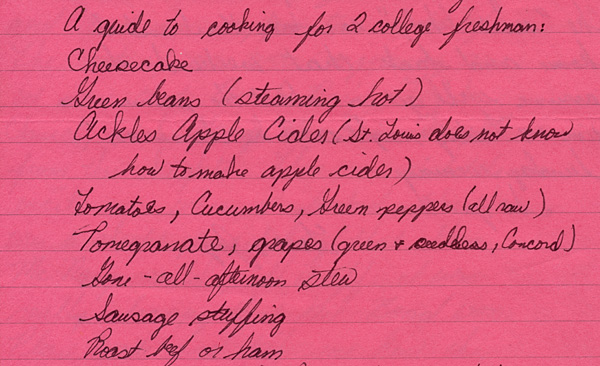 A guide to cooking for 2 college freshman:
Cheesecake
Green beans (steaming hot)
Ackles Apple Cider (St. Louis does not know
how to make apple cider)
Tomatoes, Cucumbers, Green peppers (all raw)
Pomegranate, grapes (green + seedless, Concord)
Gone-all-afternoon stew
Sausage stuffing
Roast beef or ham